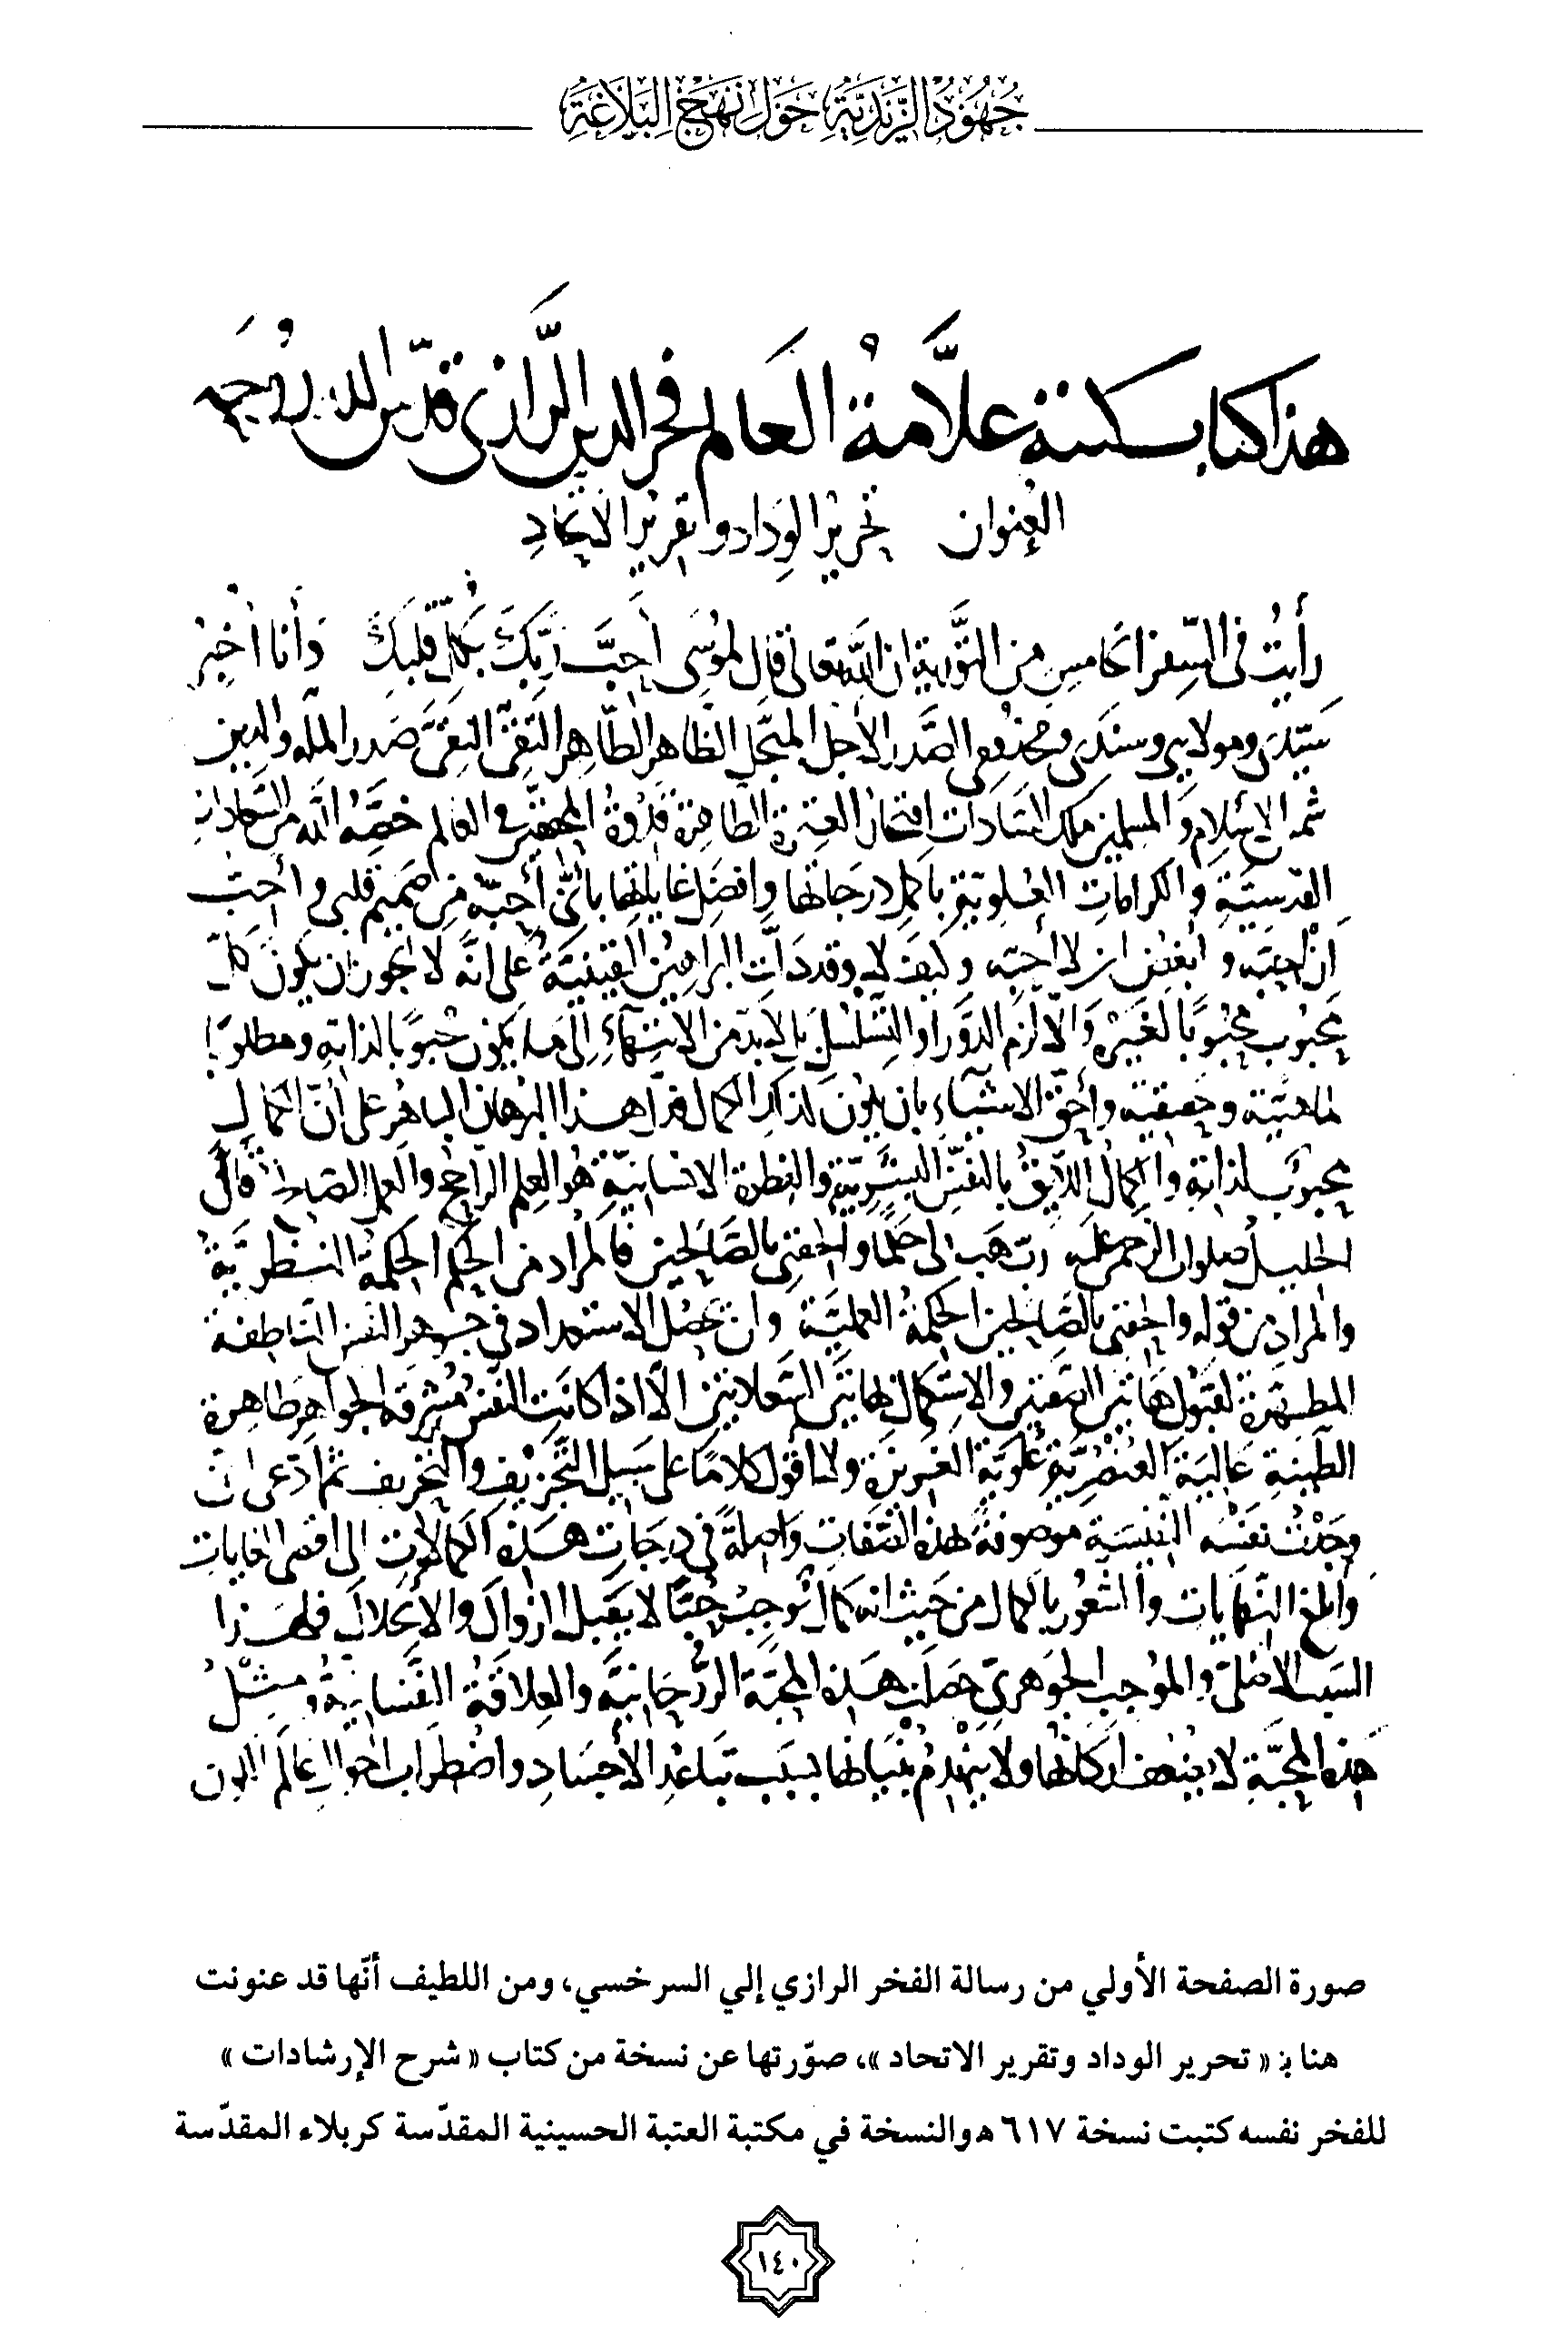 جهود الزيدية حول نهج البلاغة
هذا كتاب كتبه علامة العالم فخر الدين الرازي قدس الله روحه
العنوان تحرير الوداد وتقرير الاتحاد
رأيت في السفر الخامس من التورية ان الله تعالى قال لموسى أحب ربك بكل قلبك وأنا أخبر
سيدى ومولايى وسندى ومخدومى الصدر الأجل المبجل الظاهر الطاهر التقى النقى صدر الملة والدين
شمس الإسلام والمسلمين ملك السادات افتخار العترة الطاهرة قدوة المحققين في العالم خصه الله من السعادات
القدسية والكرامات العلوية بأكمل درجاتها وافضل غاياتها بأنى أحبه من صميم قلبى وأحب
ان احبه وابغض ان لا أحبه وكيف لا وقد دلت البراهين اليقينية على انه لا يجوز ان يكون كل
محبوب محبوبا لغيره والا لزم الدور او التسلسل بل لا بد من الانتهاء إلى ما يكون محبوبا لذاته ومطلوبا
لماهيته وحقيقته وأحق الاشياء بان يكون كذلك الكمال فدل هذا البرهان الباهر على أن الكمال
محبوب لذاته والكمال اللايق بالنفس البشرية والفطرة الانسانية هو العلم الراجح والعمل الصالح قال
الخليل صلوات الرحمن عليه رب هب لى حكما والحقنى بالصالحين فالمراد من الحكم الحكمة النظرية
والمراد من قوله والحقنى بالصالحين الحكمة العملية وان يحصل الاستعداد في جوهر النفس الناطقة
المطهرة لقبول هاتين السعادتين والاستكمال بهاتين إلا اذا كانت النفس مشرقة الجواهر طاهرة
الطينة عالية العنصرية علوية الغريزة ولما اقول كلاما على سبيل التجزيف والتخريف ثم ادعى ان
وجدت نفسه النفيسة موصوفة بهذه الصفات واصلة في درجات هذه الكمالات الى اقصى الغايات
وابلغ النهايات والشعور بالكمال من حيث انه كمال توجب حبا لا يقبل الزوال والانحلال فلهذا
السبب الاصلى والموجب الجوهرى حصلت هذه المحبة الروحانية والعلاقة النفسانية ومثل
هذه المحبة لا يضعف اركانها ولا ينهدم بنيانها بسبب تباعد الأجساد واضطراب احوال عالم الكون
صورة الصفحة الأولي من رسالة الفخر الرازي إلي السرخسي، ومن اللطيف أنّها قد عنونت
هنا بـ « تحرير الوداد وتقرير الاتحاد »، صوّرتها عن نسخة من كتاب « شرح الإرشادات »
للفخر نفسه كتبت نسخة ٦١٧ ه والنسخة في مكتبة العتبة الحسينية المقدّسة كربلاء المقدّسة
١٤٠